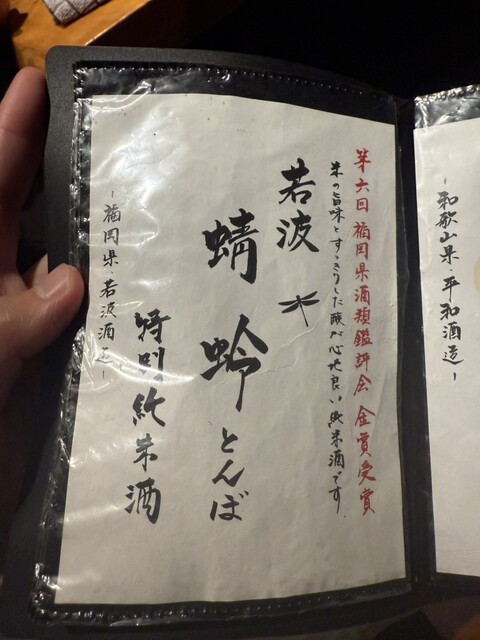 -和歌山県・平和酒造-
第六回 福岡県酒類鑑評会 金賞受賞
米の旨味とすっきりした酸が心地良い純米酒です.
若波
蜻蛉とんぼ
特別純米酒
-福岡県・若波酒造-